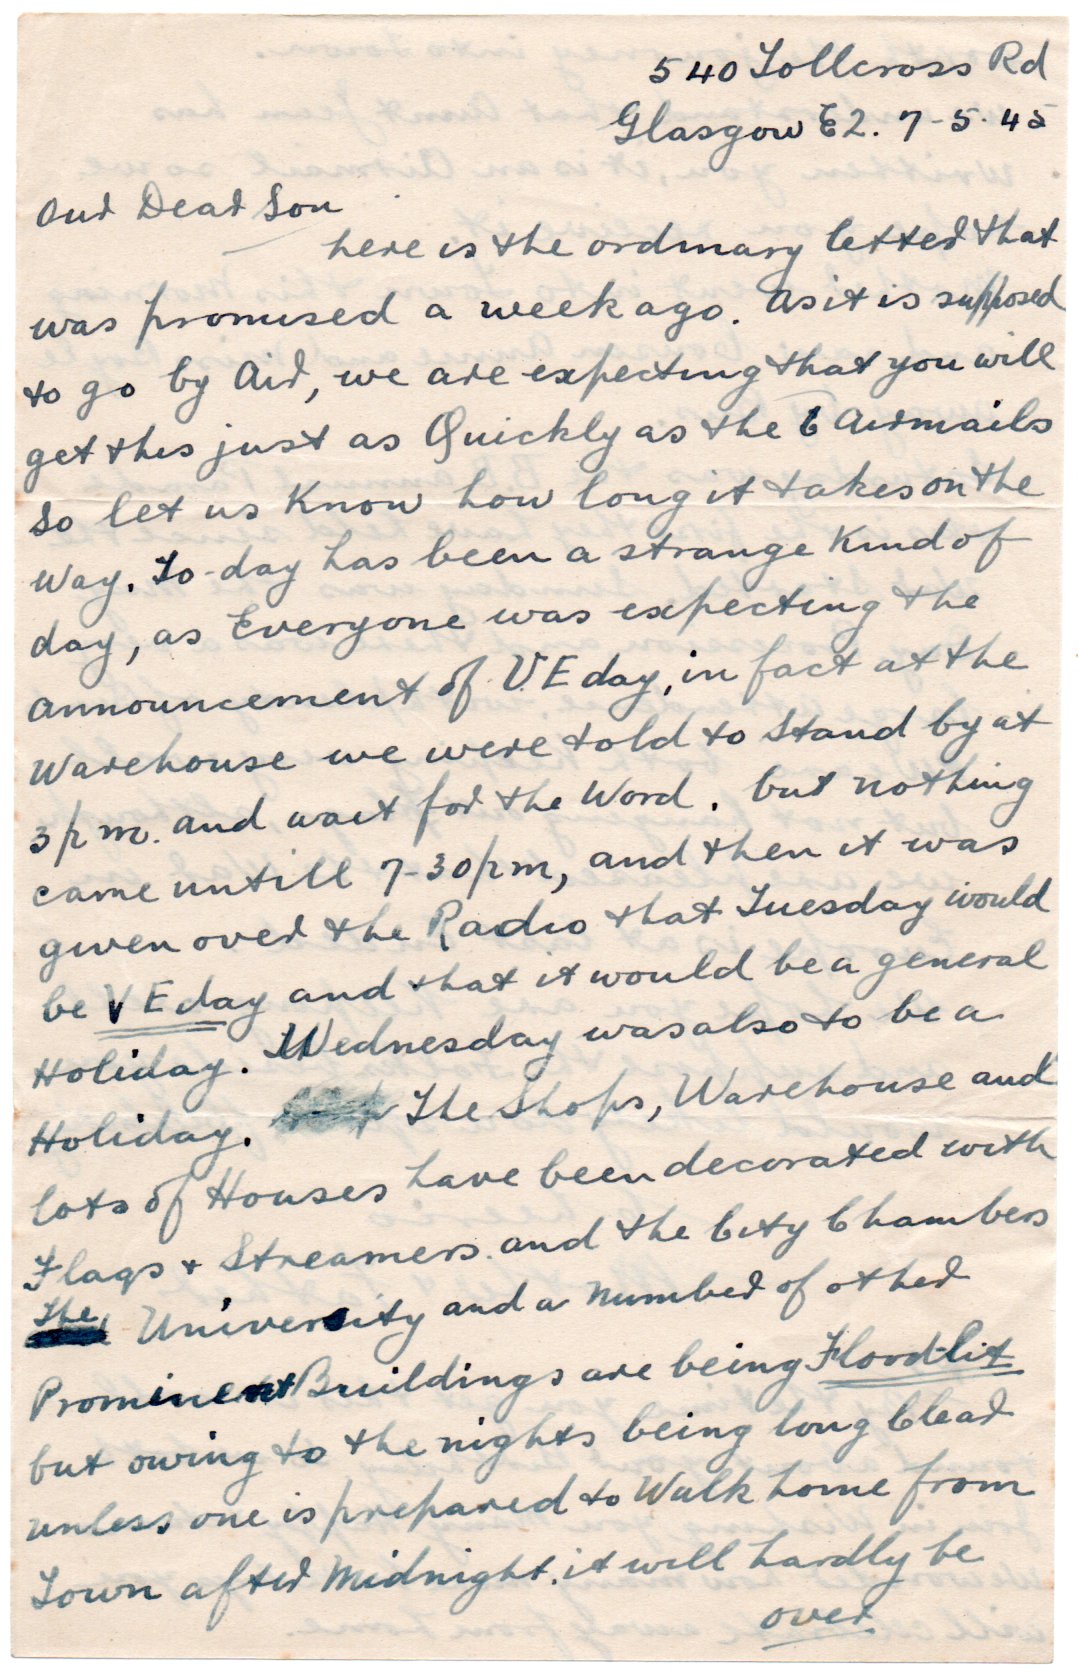 540 Tollcross Rd
Glasgow E2. 7-5-45
Our Dear Son
here is the ordinary letter that
was promised a week ago. as it is supposed
to go by Air, we are expecting that you will
get this just as Quickly as the 6 airmails
so let us Know how long it takes on the
way. To-day has been a strange Kind of
day, as Everyone was expecting the
announcement of V.E day, in fact at the
Warehouse we were told to Stand by at
3 p m. and wait for the Word. but nothing
came untill 7-30 pm, and then it was
given over the Radio that Tuesday would
be V E day and that it would be a general
Holiday. Wednesday was also to be a
Holiday. The Shops, Warehouse and
lots of Houses have been decorated with
Flags + Streamers. and the City Chambers
The University and a number of other
Prominent Buildings are being Flood-lit
but owing to the nights being long Clear
unless one is prepared to Walk home from
Town after Midnight. it will hardly be
over